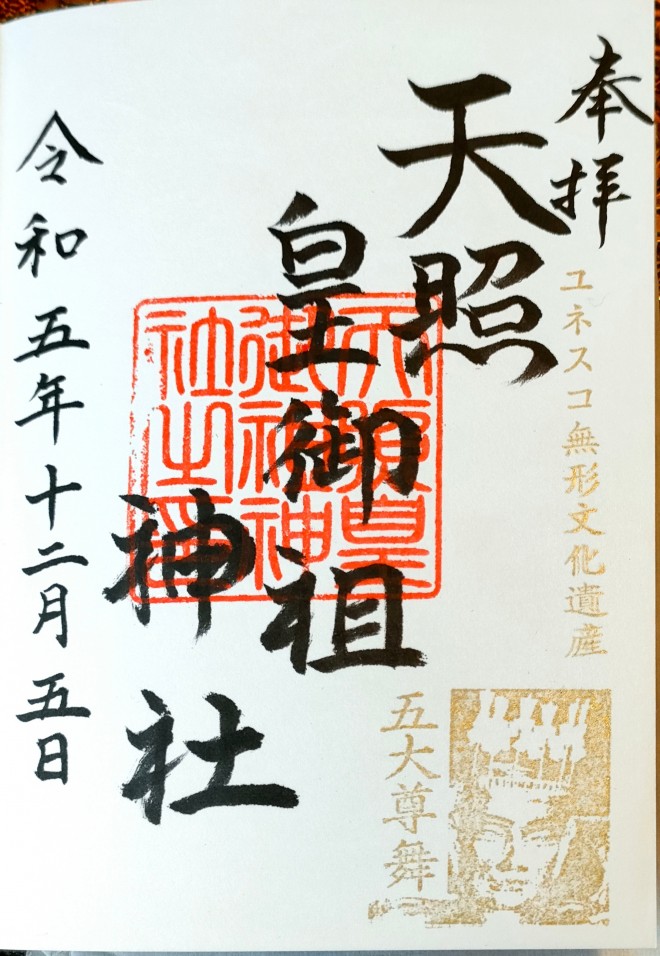 奉拝
ユネスコ無形文化遺産
天照
皇御祖
神社
五大尊舞
令和五年十二月五日
天照皇
御祖神
社之印